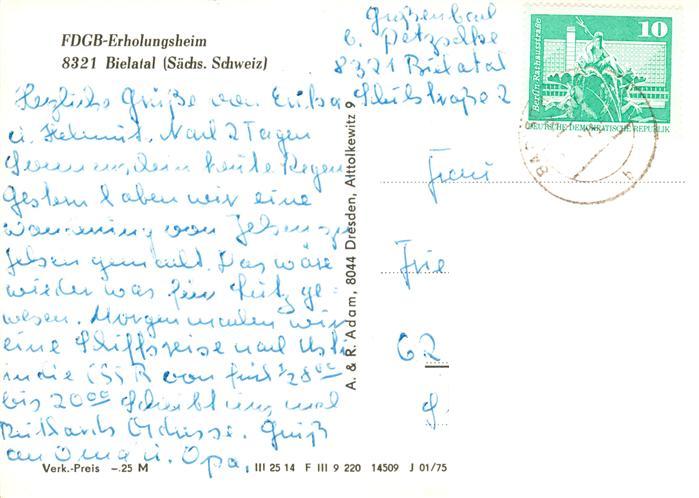 FDGB-Erholungsheim
8321 Bielatal (Sächs. Schweiz)
Herzliche Grüße von Erika
u. Helmut. Nach 2 Tagen
Sonnenschein heute Regen
Gestern haben wir eine
Wanderung von Felsen zu
Felsen gemacht. Das wäre
wieder was für Lutz ge-
wesen. Morgen machen wir
eine Schiffsreise nach Usti
in die ČSSR von früh 1/2 8 00
bis 20 00 Schreibt uns mal
Adresse. Gruß
an Oma u. Opa.
b. Petzschke
8321 Bielatal
Schulstraße 2
Frau
Frie
62
Berlin, Rathausstraße
10
DEUTSCHE DEMOKRATISCHE REPUBLIK
A. & R. Adam, 8044 Dresden, Alttolkewitz 9
Verk.-Preis –.25 M III 25 14 F III 9 220 14509 J 01/75